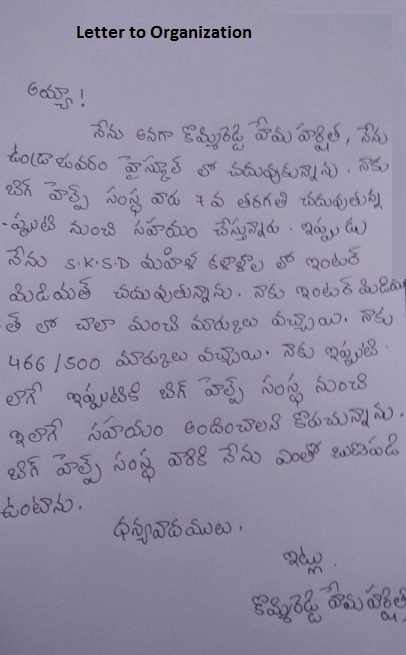 Letter to Organization
అయ్యా!
నేను అనగా కొమ్మిరెడ్డి హేమ హర్షిత, నేను
ఉండ్రాజవరం హైస్కూల్ లో చదువుకున్నాను. నాకు
బిగ్ హెల్ప్ సంస్థ వారు 7 వ తరగతి చదువుతున్న
-ప్పుటి నుంచి సహయం చేస్తున్నారు. ఇప్పుడు
నేను S.K.S.D మహిళ కళాశాల లో ఇంటర్
మిడియత్ చదువుతున్నాను. నాకు ఇంటర్ మిడియ
-త్ లో చాలా మంచి మార్కులు వచ్చాయి. నాకు
466/500 మార్కులు వచ్చాయి. నాకు ఇప్పుటి
లాగే ఇప్పుటికి బిగ్ హెల్ప్ సంస్థ నుంచి
ఇలాగే సహయం అందించాలని కోరుచున్నాను.
బిగ్ హెల్ప్ సంస్థ వారికి నేను ఎంతో బుణపడి
ఉంటాను.
ధన్యవాదములు.
ఇట్లు
కొమ్మిరెడ్డి హేమ హర్షిత